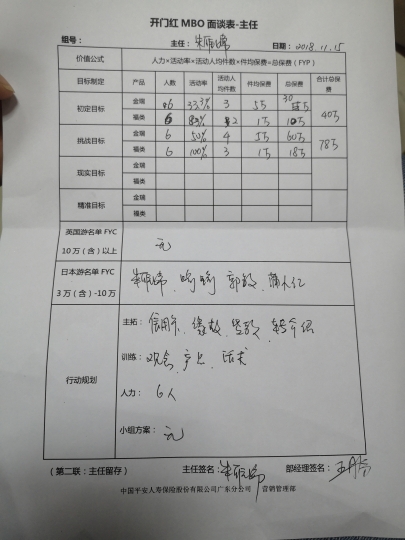 开门红 MBO 面谈表-主任
组号： 主任： 日期：2018.11.15
价值公式 人力×活动率×活动人均件数×件均保费=总保费（FYP）
目标制定 产品 人数 活动率 活动人均件数 件均保费 总保费 合计总保费
初定目标 金瑞 6 33.3% 3 5万 30万 40万
福类 6 2 1万 10万
挑战目标 金瑞 6 50% 4 5万 60万 78万
福类 6 100% 3 1万 18万
现实目标 金瑞
福类
精准目标 金瑞
福类
英国游名单 FYC
10 万（含）以上 无
日本游名单 FYC
3 万（含）-10 万
行动规划
主拓：信用卡、缘故、转介绍
训练：观念、产品、话术
人力：6人
小组方案：无
（第二联：主任留存） 主任签名： 部经理签名：
中国平安人寿保险股份有限公司广东分公司 营销管理部